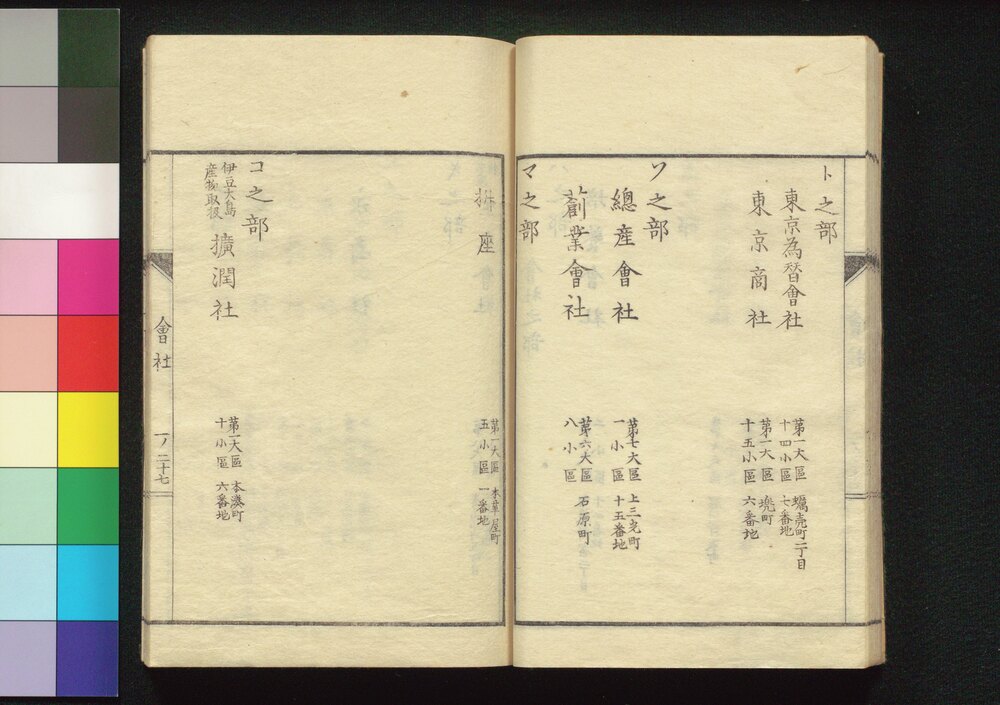 ト之部
東京為替會社
第一大區 蠣売町二丁目
十四小區 七番地
東京商社
第一大區 堯町
十五小區 六番地
ソ之部
總産會社
第七大區 上三光町
一小區 十五番地
創業會社
第六大區 石原町
八小區
マ之部
座
第一大區 本草屋町
五小區 一番地
コ之部
伊豆大島
産物取扱
擴潤社
第一大區 本湊町
十小區 六番地
會社
一ノ二十七